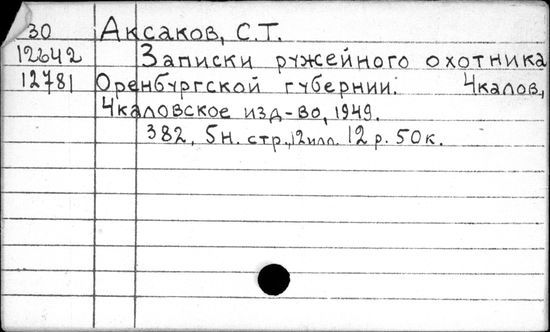 30 Аксаков, С.Т.
12642 Записки ружейного охотника
12781 Оренбургской губернии. Чкалов,
Чкаловское изд-во, 1949.
382, 5н. стр., 12илл. 12 р. 50к.